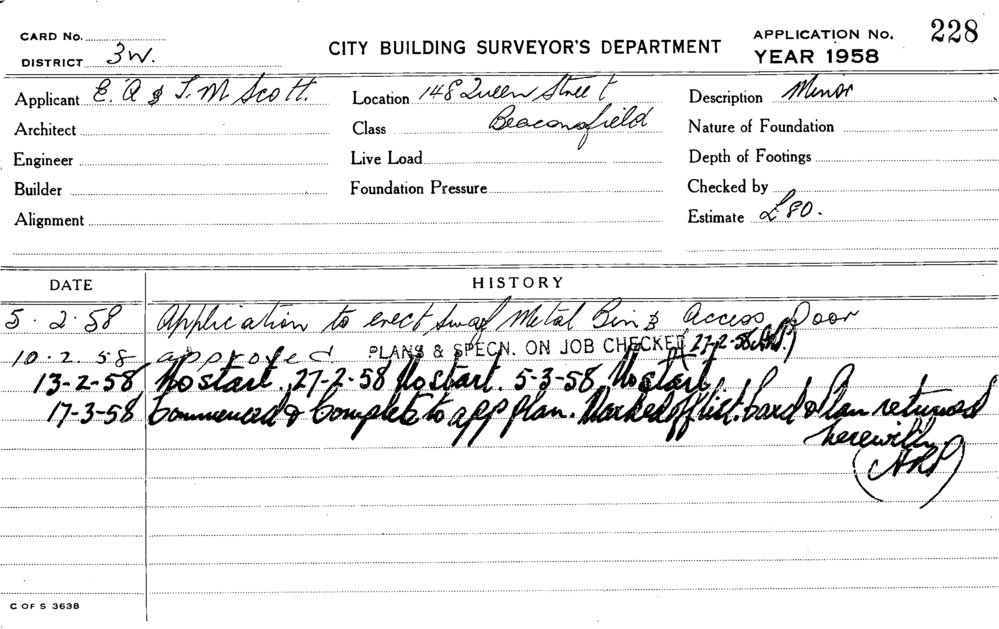 CARD No.
DISTRICT 3W.
CITY BUILDING SURVEYOR'S DEPARTMENT
APPLICATION No. 228
YEAR 1958
Applicant E. A & J. M Scott.
Location 148 Queen Street
Description Minor
Architect
Class Beaconsfield
Nature of Foundation
Engineer
Live Load
Depth of Footings
Builder
Foundation Pressure
Checked by
Alignment
Estimate £80.
DATE HISTORY
5.2.58 Application to erect swarf Metal Bin & Access Door
10.2.58 approved PLANS & SPECN. ON JOB CHECKED 27-2-58
13-2-58 No start. 27-2-58 No start. 5-3-58 No start.
17-3-58 Commenced & Complete to app plan. Marked off list. Card & Plan returned
herewith
C OF S 3638